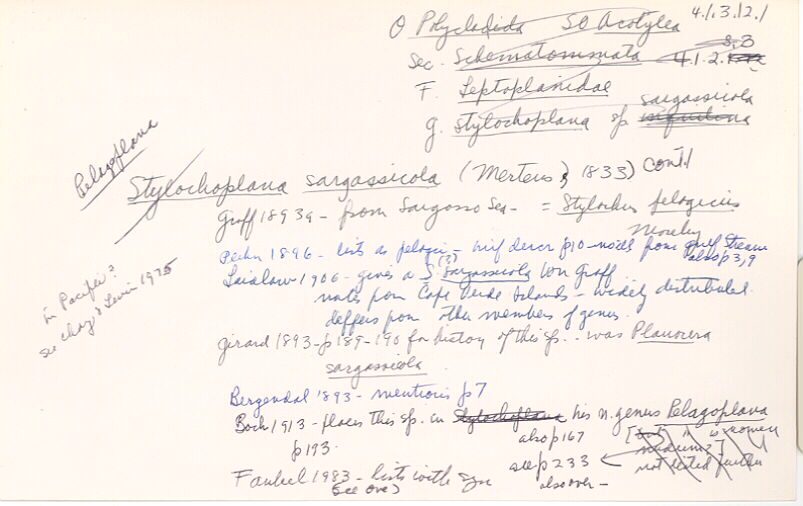 4.1.3.12.1
O Polycladida SO Acotylea
8,3
Sec. Schematommata 4.1.2.
F. Leptoplanidae
sargassicola
g. Stylochoplana sp
Pelagoplana
Stylochoplana sargassicola (Mertens, 1833) cont'd
Graff 1893a - from Sargasso Sea - = Stylochus pelagicus
Moseley
Plehn 1896 - lists as pelagic - brief descr p10 - notes from gulf Stream
also p 3, 9
Laidlaw 1906 - gives a S. (?) Sargassicola von Graff
notes from Cape Verde Islands - widely distributed.
differs from other members of genus.
in Pacific?
see Chag? Levin 1975
Girard 1893 - p 189-190 for history of this sp.. was Planocera
sargassicola
Bergendal 1893 - mentions p 7
Bock 1913 - places this sp. in Stylochoplana his n. genus Pelagoplana
p 193.
also p 167
see p 233
not listed further
also over -
Faubel 1983 - lists with syn
(see over)